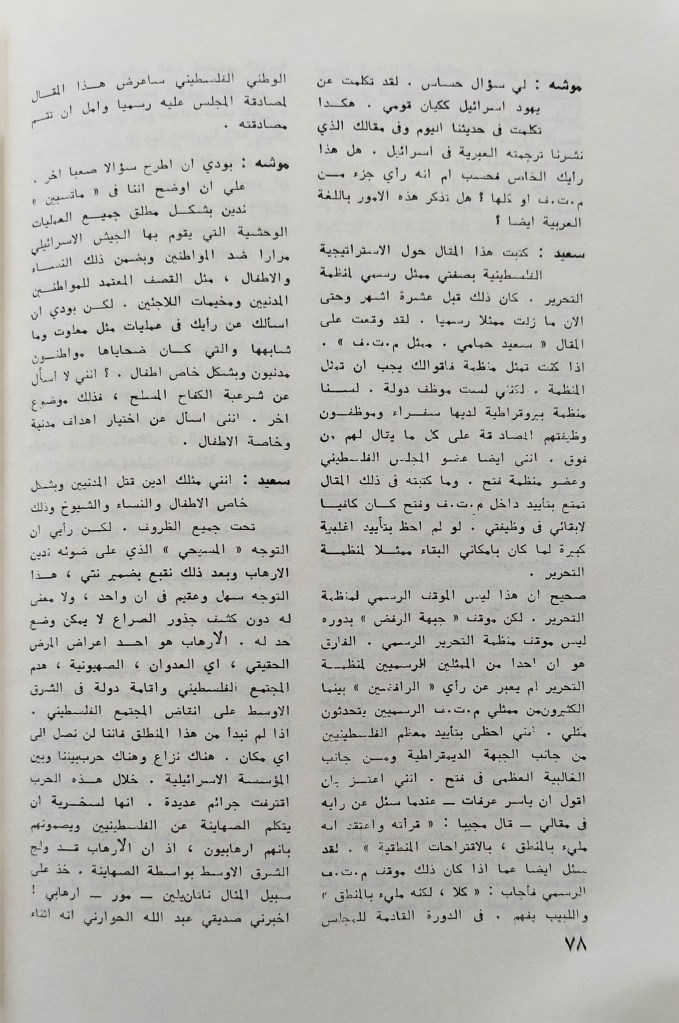 موشه : لي سؤال حساس . لقد تكلمت عن
يهود اسرائيل ككيان قومي . هكذا
تكلمت في حديثنا اليوم وفى مقالك الذي
نشرنا ترجمته العبرية فى اسرائيل . هل هذا
رأيك الخاص فحسب ام انه رأي جزء مــن
م.ت.ف او كلها ؟ هل تذكر هذه الامور باللغة
العربية ايضا ؟
سعيد : كتبت هذا المقال حول الاستراتيجية
الفلسطينية بصفتي ممثل رسمي لمنظمة
التحرير . كان ذلك قبل عشرة اشهر وحتى
الان ما زلت ممثلا رسميا . لقد وقعت على
المقال « سعيد حمامي . ممثل م.ت.ف » .
اذا كنت تمثل منظمة فاقوالك يجب ان تمثل
المنظمة . لكنني لست موظف دولة . لسنـا
منظمة بيروقراطية لديها سفـراء وموظفـون
وظيفتهم المصادقة على كل ما يقال لهم من
فوق . اننى ايضا عضو المجلس الفلسطيني
وعضو منظمة فتح . وما كتبته فى ذلك المقال
تمتع بتأييد داخل م.ت.ف وفتح كـان كافيـا
لابقائي فى وظيفتي . لو لم احظ بتأييد اغلبية
كبيرة لما كان بامكاني البقاء ممثـلا لمنظمـة
التحرير .
صحيح ان هذا ليس الموقف الرسمي لمنظمة
التحرير . لكن موقف « جبهة الرفض » بدوره
ليس موقف منظمة التحرير الرسمي . الفارق
هو ان احدا من الممثلين الرسميين لمنظمـة
التحرير لم يعبر عن رأي « الرافضين » بينما
الكثيرون من ممثلي م.ت.ف الرسميين يتحدثون
مثلي . انني احظى بتأييد معظم الفلسطينيين
من جانب الجبهة الديمقراطية ومـن جانب
الغالبية العظمى فى فتح . انني اعتـز بان
اقول ان ياسر عرفات ـ عندما سئل عن رايه
فى مقالي ـ قال مجيبا : « قرأته واعتقد انه
مليء بالمنطق ، بالاقتراحات المنطقية » . لقد
سئل ايضا عما اذا كان ذلك موقف م.ت.ف
الرسمي فأجاب : « كلا ، لكنه مليء بالمنطق »
واللبيب يفهم . فى الدورة القادمة للمجلس
الوطني الفلسطيني ساعرض هـذا المقال
لمصادقة المجلس عليه رسميا وامل ان تتم
مصادقته .
موشه : بودي ان اطرح سؤالا صعبا اخر .
علي ان اوضح اننا فى « ماتسبين »
ندين بشكـل مطلق جميـع العمليات
الوحشية التي يقوم بها الجيش الاسرائيلي
مرارا ضد المواطنين وبضمن ذلك النسـاء
والاطفال ، مثل القصف المعتمد للمواطنـين
المدنيين ومخيمات اللاجئين . لكـن بودي ان
اسالك عن رأيك فى عمليات مثل معلوت وما
شابهها والتي كـان ضحاياها مواطنـون
مدنيون وبشكل خاص اطفال . ؟ انني لا أسأل
عن شرعية الكفاح المسلح ، فذلك موضوع
اخر . اننى اسأل عن اختيار اهداف مدنية
وخاصة الاطفال .
سعيد : انني مثلك ادين قتل المدنيين وبشكل
خاص الاطفال والنساء والشيوخ وذلك
تحت جميع الظروف . لكـن رأيي ان
التوجه « المسيحي » الذي على ضوئه ندين
الارهاب وبعد ذلك نقبع بضمير نقي ، هـذا
التوجه سهل وعقيم فى ان واحد ، ولا معنى
له دون كشف جذور الصراع لا يمكن وضع
حد لـه . الأرهاب هو احـد اعراض المرض
الحقيقي ، اي العدوان ، الصهيونية ، هدم
المجتمع الفلسطيني واقامة دولة فى الشرق
الاوسط على انقاض المجتمع الفلسطيني .
اذا لم نبدأ من هذا المنطلق فاننا لن نصل الى
اي مكان . هناك نزاع وهناك حرب بيننا وبين
المؤسسة الاسرائيلية . خلال هـذه الحرب
اقترفت جرائم عديدة . انها لسخـرية ان
يتكلم الصهاينة عن الفلسطينيين ويصمونهم
بانهم ارهابيون ، اذ ان الأرهاب قـد ولج
الشرق الاوسط بواسطة الصهاينة . خذ على
سبيل المثال ناتان يلين ـ مور ـ ارهابي !
اخبرني صديقي عبد الله الحوارني انه اثناء
٧٨